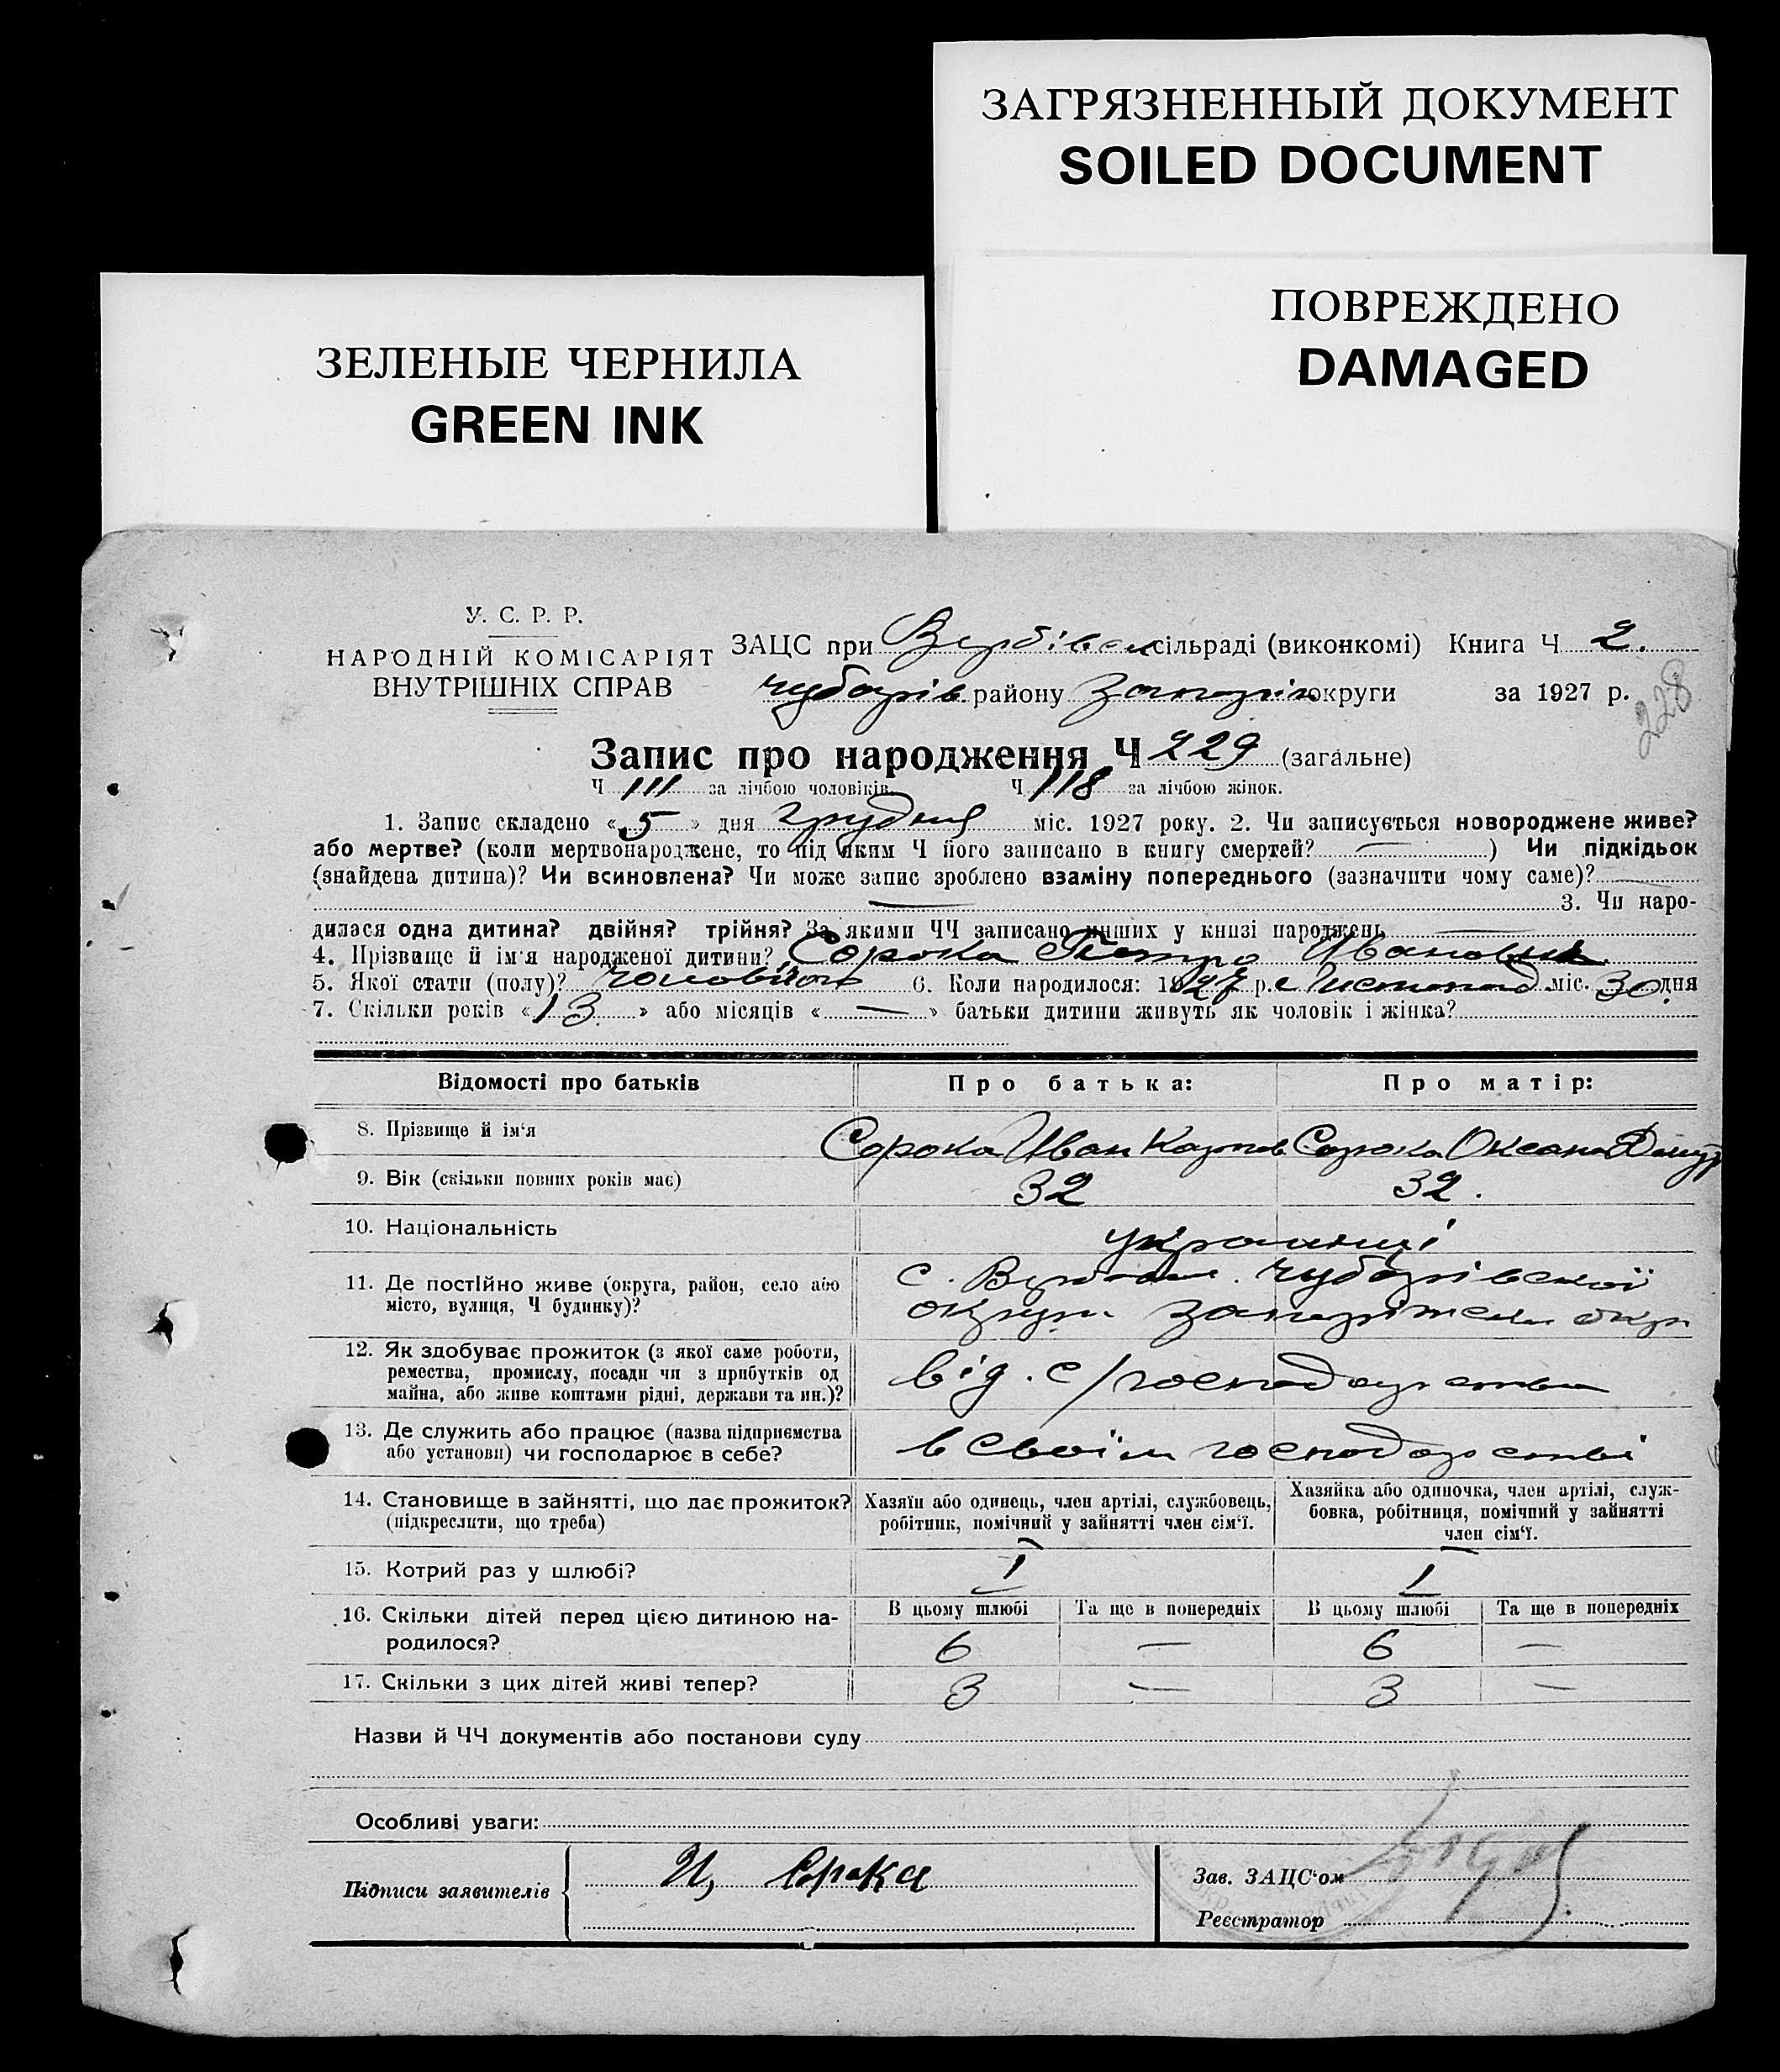 ЗАГРЯЗНЕННЫЙ ДОКУМЕНТ
SOILED DOCUMENT
ПОВРЕЖДЕНО
DAMAGED
ЗЕЛЕНЫЕ ЧЕРНИЛА
GREEN INK
У. С. Р. Р.
НАРОДНІЙ КОМІСАРІЯТ
ВНУТРІШНІХ СПРАВ
ЗАЦС при Вербівськ сільраді (виконкомі) Книга Ч 2.
чубарів району округи за 1927 р.
228
Запис про народження Ч 229 (загальне)
Ч 111 за лічбою чоловіків Ч 118 за лічбою жінок.
1. Запис складено « 5 » дня грудня міс. 1927 року. 2. Чи записується новороджене живе?
або мертве? (коли мертвонароджене, то під яким Ч його записано в книгу смертей? — ) Чи підкідьок
(знайдена дитина)? Чи всиновлена? Чи може запис зроблено взаміну попереднього (зазначити чому саме)? —
— 3. Чи наро-
дилася одна дитина? двійня? трійня? За якими ЧЧ записано инших у книзі народжень —
4. Прізвище й ім'я народженої дитини? Сорока Петро Иванович
5. Якої стати (полу)? чоловічої 6. Коли народилося: 1927 р. Листопад міс. 30 дня
7. Скільки років « 13 » або місяців « — » батьки дитини живуть як чоловік і жінка?
Відомості про батьків
Про батька:
Про матір:
8. Прізвище й ім‘я
Сорока Иван Карпов
Сорока Оксана
9. Вік (скільки повних років має)
32
32.
10. Національність
українці
11. Де постІйно живе (округа, район, село або
місто, вулиця, Ч будинку)?
с. Вербове. чубарівської
округи запоріжськ окр
12. Як здобуває прожиток (з якої саме роботи,
ремества, промислу, посади чи з прибутків од
майна, або живе коштами рідні, держави та ин.)?
від. с/господарства
13. Де служить або працює (назва підприємства
або установи) чи господарює в себе?
в своїм господарстві
14. Становище в зайнятті, що дає прожиток?
(підкреслити, що треба)
Хазяїн або одинець, член артілі, службовець,
робітник, помічний у зайнятті член сім‘ї.
Хазяйка або одиночка, член артілі, служ-
бовка, робітниця, помічний у зайнятті
член сім‘ї.
15. Котрий раз у шлюбі?
1
1
16. Скільки дітей перед цією дитиною на-
родилося?
В цьому шлюбі Та ще в попередніх В цьому шлюбі Та ще в попередніх
6 — 6 —
17. Скільки з цих дітей живі тепер?
3 — 3 —
Назви й ЧЧ документів або постанови суду
Особливі уваги:
Підписи заявителів
И, Сорока
Зав. ЗАЦС‘ом
Реєстратор